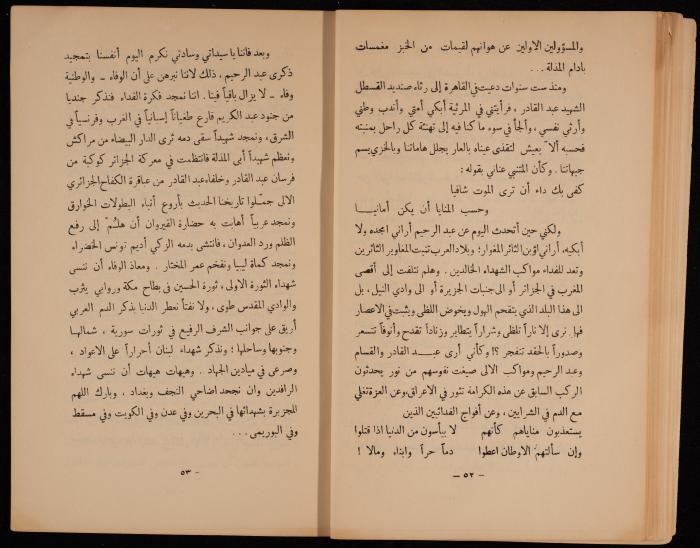 والمسؤولين الاولين عن هوانهم لقيمات من الخبز مغمسات
بادام المذلة ...
ومنذ ست سنوات دعيت في القاهرة إلى رثاء صنديد القسطل
الشهيد عبد القادر ، فرأيتني في المرئية أبكي أمتي وأندب وطني
وأرثي نفسي ، وألجأ في سوء ما كنا فيه إلى تهنئة كل راحل بمنيته
فحسبه ألا يعيش لتقذى عيناه بالعار يجلل هاماتنا وبالخزي يسم
جبهاتنا . وكأن المتنبي عناني بقوله :
كفى بك داء أن ترى الموت شافيا
وحسب المنايا أن يكن أمانيـا
ولكني حين أتحدث اليوم عن عبد الرحيم أراني امجده ولا
أبكيه، أراني اؤبن الثائر المغوار؛ وبلاد العرب تنبت المغاوير الثائرين
وتعد للفداء مواكب الشهداء الخالدين . وهلم نتلفت إلى أقصى
المغرب في الجزائر أو الى جنبات الجزيرة أو الى وادي النيل ، بل
الى هذا البلد الذي يتقحم الهول ويخوض اللظى ويثبت في الاعصار
فهل نرى إلا ناراً تلظى وشراراً يتطاير وزناداً تقدح وأنوفاً تتسعر
وصدوراً بالحقد تنفجر ؟! وكأني أرى عبـد القادر والقسام
وعبد الرحيم ومواكب الالى صيغت نفوسهم من نور يحدثون
الركب السابق عن هذه الكرامة تثور في الاعراق، وعن العزة تغلي
مع الدم في الشرايين ، وعن أفواج الفدائيين الذين
يستعذبون مناياهم كأنهم لا ييأسون من الدنيا اذا قتلوا
وإن سألتهم الاوطان اعطوا دماً حراً وابناء ومالا !
– ٥٢ –
وبعد فاننا يا سيداتي وسادتي نكرم اليوم أنفسنا بتمجيد
ذكرى عبد الرحيم ، ذلك لاننا نبرهن على أن الوفاء - والوطنية
وفاء - لا يزال باقياً فينا . اننا نمجد فكرة الفداء فنذكر جنديا
من جنود عبد الكريم قارع طغياناً إسبانياً في الغرب وفرنسياً في
الشرق ، ونمجد شهيداً سقى دمه ثرى الدار البيضاء من مراكش
ونعظم شهيداً أبى المذلة فانتظمت في معركة الجزائر كوكبة من
فرسان عبد القادر وخلفاء عبد القادر من عباقرة الكفاح الجزائري
الالى جمّلوا تاريخنا الحديث بأروع أنباء البطولات الخوارق
ونمجد عربياً أهابت به حضارة القيروان أن هلمّ إلى رفع
الظلم ورد العدوان ، فانتشى بدمه الزكي أديم تونس الخضراء
ونمجد كماة ليبيا ونفخم عمر المختار . ومعاذ الوفاء أن ننسى
شهداء الثورة الاولى ، ثورة الحسين في بطاح مكة وروابي يثرب
والوادي المقدس طوى ، ولا نفتأ نعطر الدنيا بذكر الدم العربي
أريق على جوانب الشرف الرفيع في ثورات سورية ، شمالهـا
وجنوبها وساحلها ؛ ونذكر شهداء لبنان أحراراً على الاعواد ،
وصرعى في ميادين الجهاد . وهيهات هيهات أن ننسى شهداء
الرافدين وان نجحد اضاحي النجف وبغداد ، وبارك اللهم
الجزيرة بشهدائها في البحرين وفي عدن وفي الكويت وفي مسقط
وفي البوريمى ...
– ٥٣